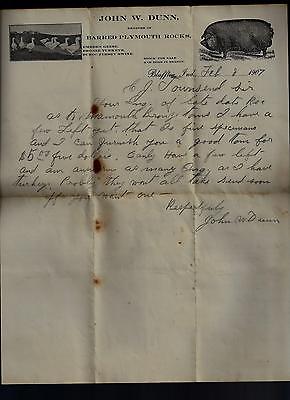 JOHN W. DUNN,
BREEDER OF
BARRED PLYMOUTH ROCKS,
EMBDEN GEESE,
BRONZE TURKEYS,
DUROC JERSEY SWINE.
STOCK FOR SALE
EGGS IN SEASON
Bluffton, Ind., Feb 8 1907
E. J. Townsend Sir
Your Inq. of late date Rec
as to Mammoth bronze toms I have a
few Left yet, that are fine specimens
and I can furnish you a good Tom for
$5.00 five dollars. Only Have a few left
and am as many as I have
turkeys they wont all take send soon
if you want one —
Respectfully
John W Dunn